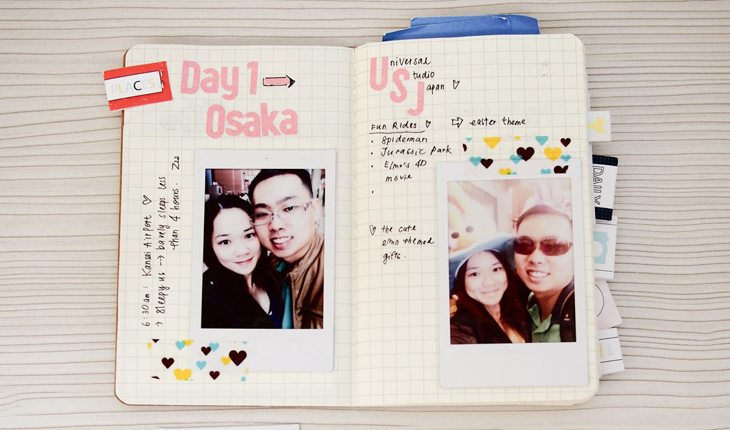 PLACES
Day 1
Osaka
6:30am : Kansai Airport ♡
→ Sleepy us → barely sleeps less
than 4 hours. Zzz
Universal
Studio
Japan ♡
Fun Rides ♡ ⇨ easter theme
• Spiderman
• Jurassic Park
• Elmo's 4D
movie
•
♡ the cute
elmo themed
gifts.
DAILY